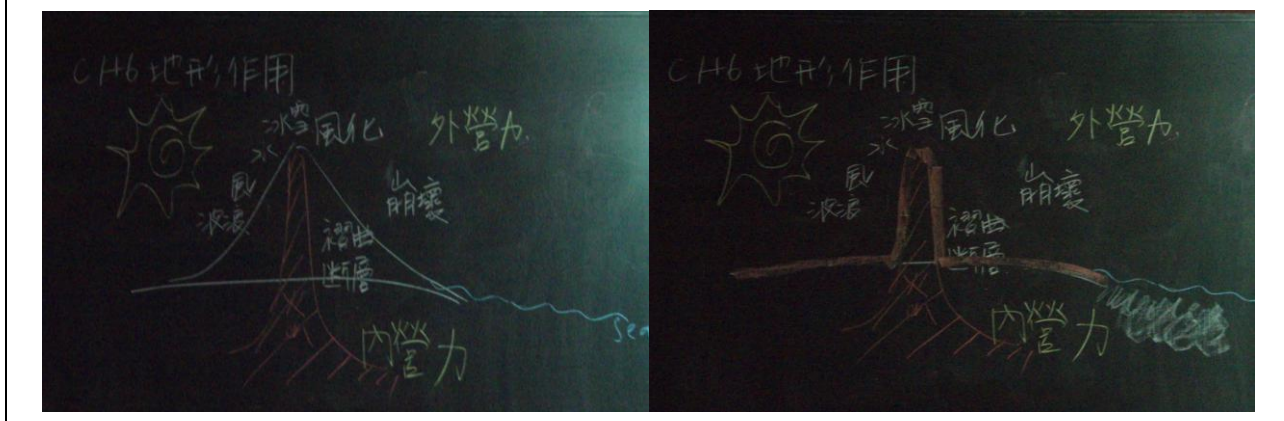 CH6 地形作用
冰雪 風化 外營力
水
風
崩壞
波浪
褶曲
斷層
內營力
Sea
CH6 地形作用
冰雪 風化 外營力
水
風
崩壞
波浪
褶曲
斷層
內營力